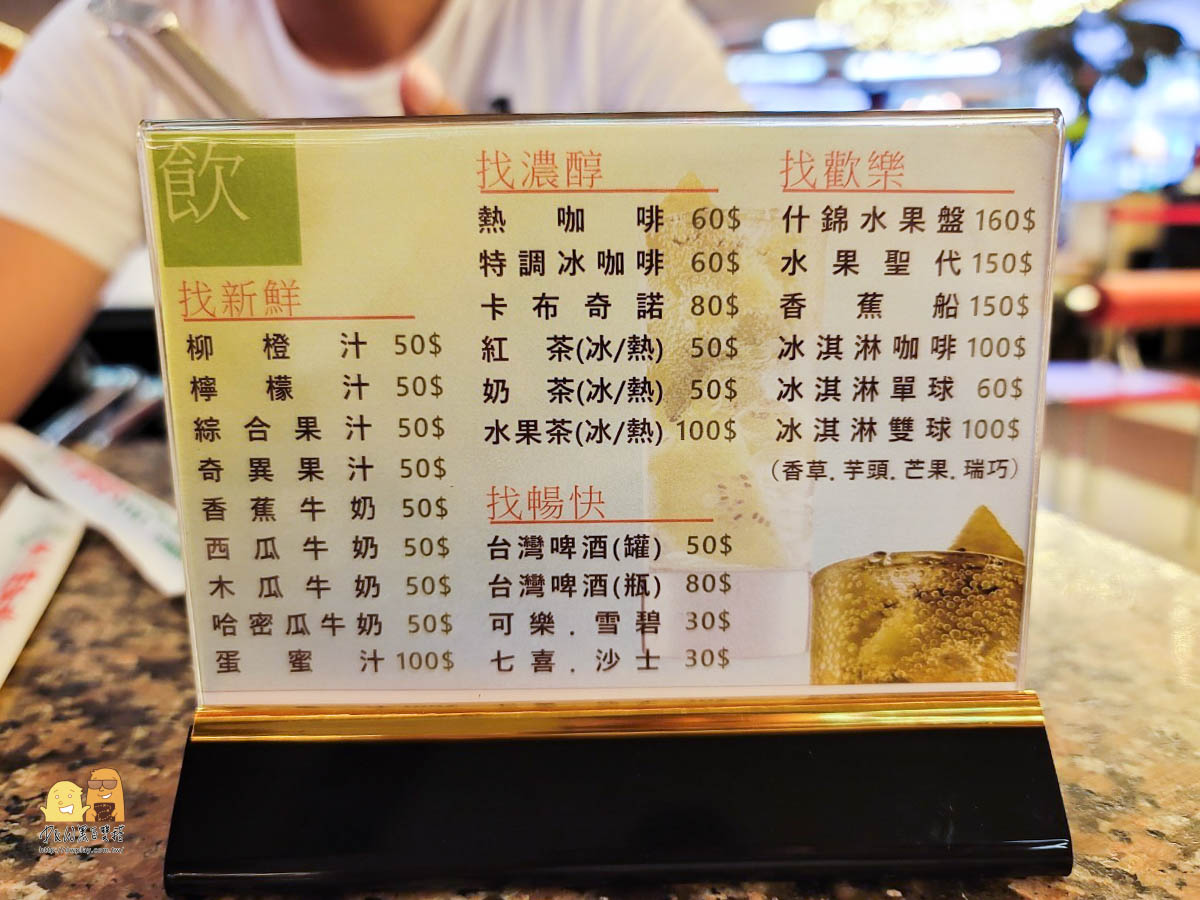 飲
找新鮮
柳橙汁 50$
檸檬汁 50$
綜合果汁 50$
奇異果汁 50$
香蕉牛奶 50$
西瓜牛奶 50$
木瓜牛奶 50$
哈密瓜牛奶 50$
蛋蜜汁 100$
找濃醇
熱咖啡 60$
特調冰咖啡 60$
卡布奇諾 80$
紅茶(冰/熱) 50$
奶茶(冰/熱) 50$
水果茶(冰/熱) 100$
找暢快
台灣啤酒(罐) 50$
台灣啤酒(瓶) 80$
可樂.雪碧 30$
七喜.沙士 30$
找歡樂
什錦水果盤 160$
水果聖代 150$
香蕉船 150$
冰淇淋咖啡 100$
冰淇淋單球 60$
冰淇淋雙球 100$
(香草.芋頭.芒果.瑞巧)